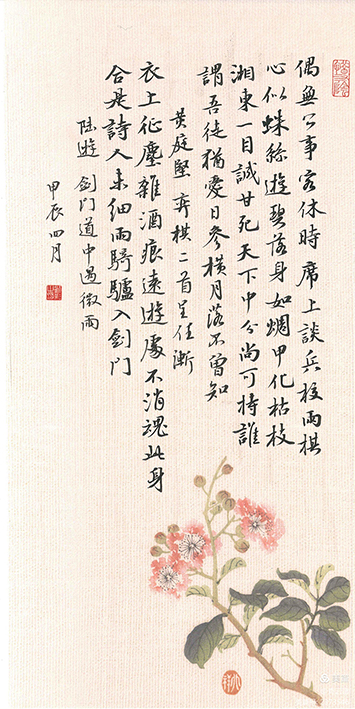 偶無公事客休時席上談兵校兩棋
心似蛛絲遊碧落身如蜩甲化枯枝
湘東一目誠甘死天下中分尚可持誰
謂吾徒猶愛日參橫月落不曾知
黃庭堅 弈棋二首呈任漸
衣上征塵雜酒痕遠遊處不消魂此身
合是詩人未細雨騎驢入劍门
陸遊 劍门道中遇微雨
甲辰四月